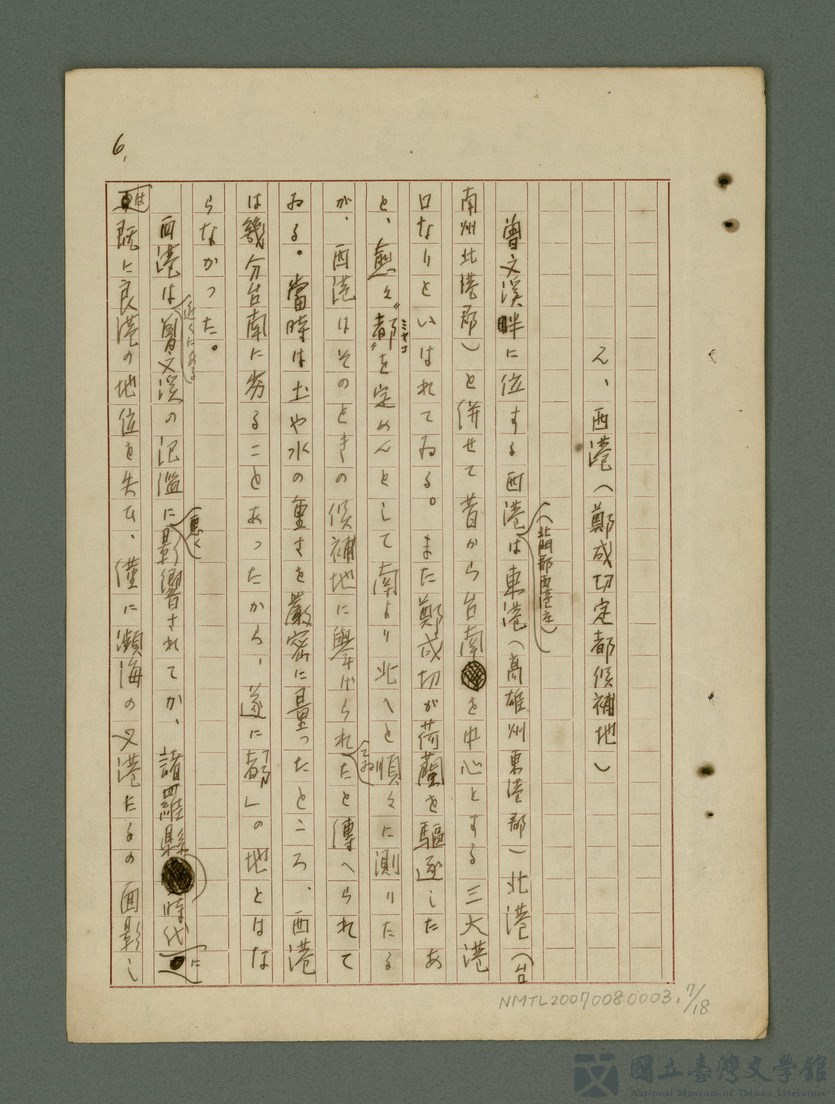 6.
え、西港(鄭成功定都候補地)
曽文溪畔に位する西港は東港(高雄州東港郡)北港(台
(北門郡西港庄)
南州北港郡)と併せて昔から台南を中心とする三大港
口なりといはれてゐる。また鄭成功が荷蘭を驅逐したあ
と、態々〝都〟を定めんとして南より北へと順々に測りたる
ミヤコ
が、西港はそのときの候補地に擧げられたと傳へられて
ゐる。當時は土や水の重さを嚴密に量ったところ、西港
は幾分台南に劣ることあったから、遂に「都」の地とはな
らなかった。
西港は曽文溪の氾濫に影響されてか、諸羅縣時代に
近くにある
悪く
は既に良港の地位を失ひ、僅に瀕海の
港たるの面影し
NMTL20070080003, 7/18
國立臺灣文學館
National Museum of Taiwan Literature